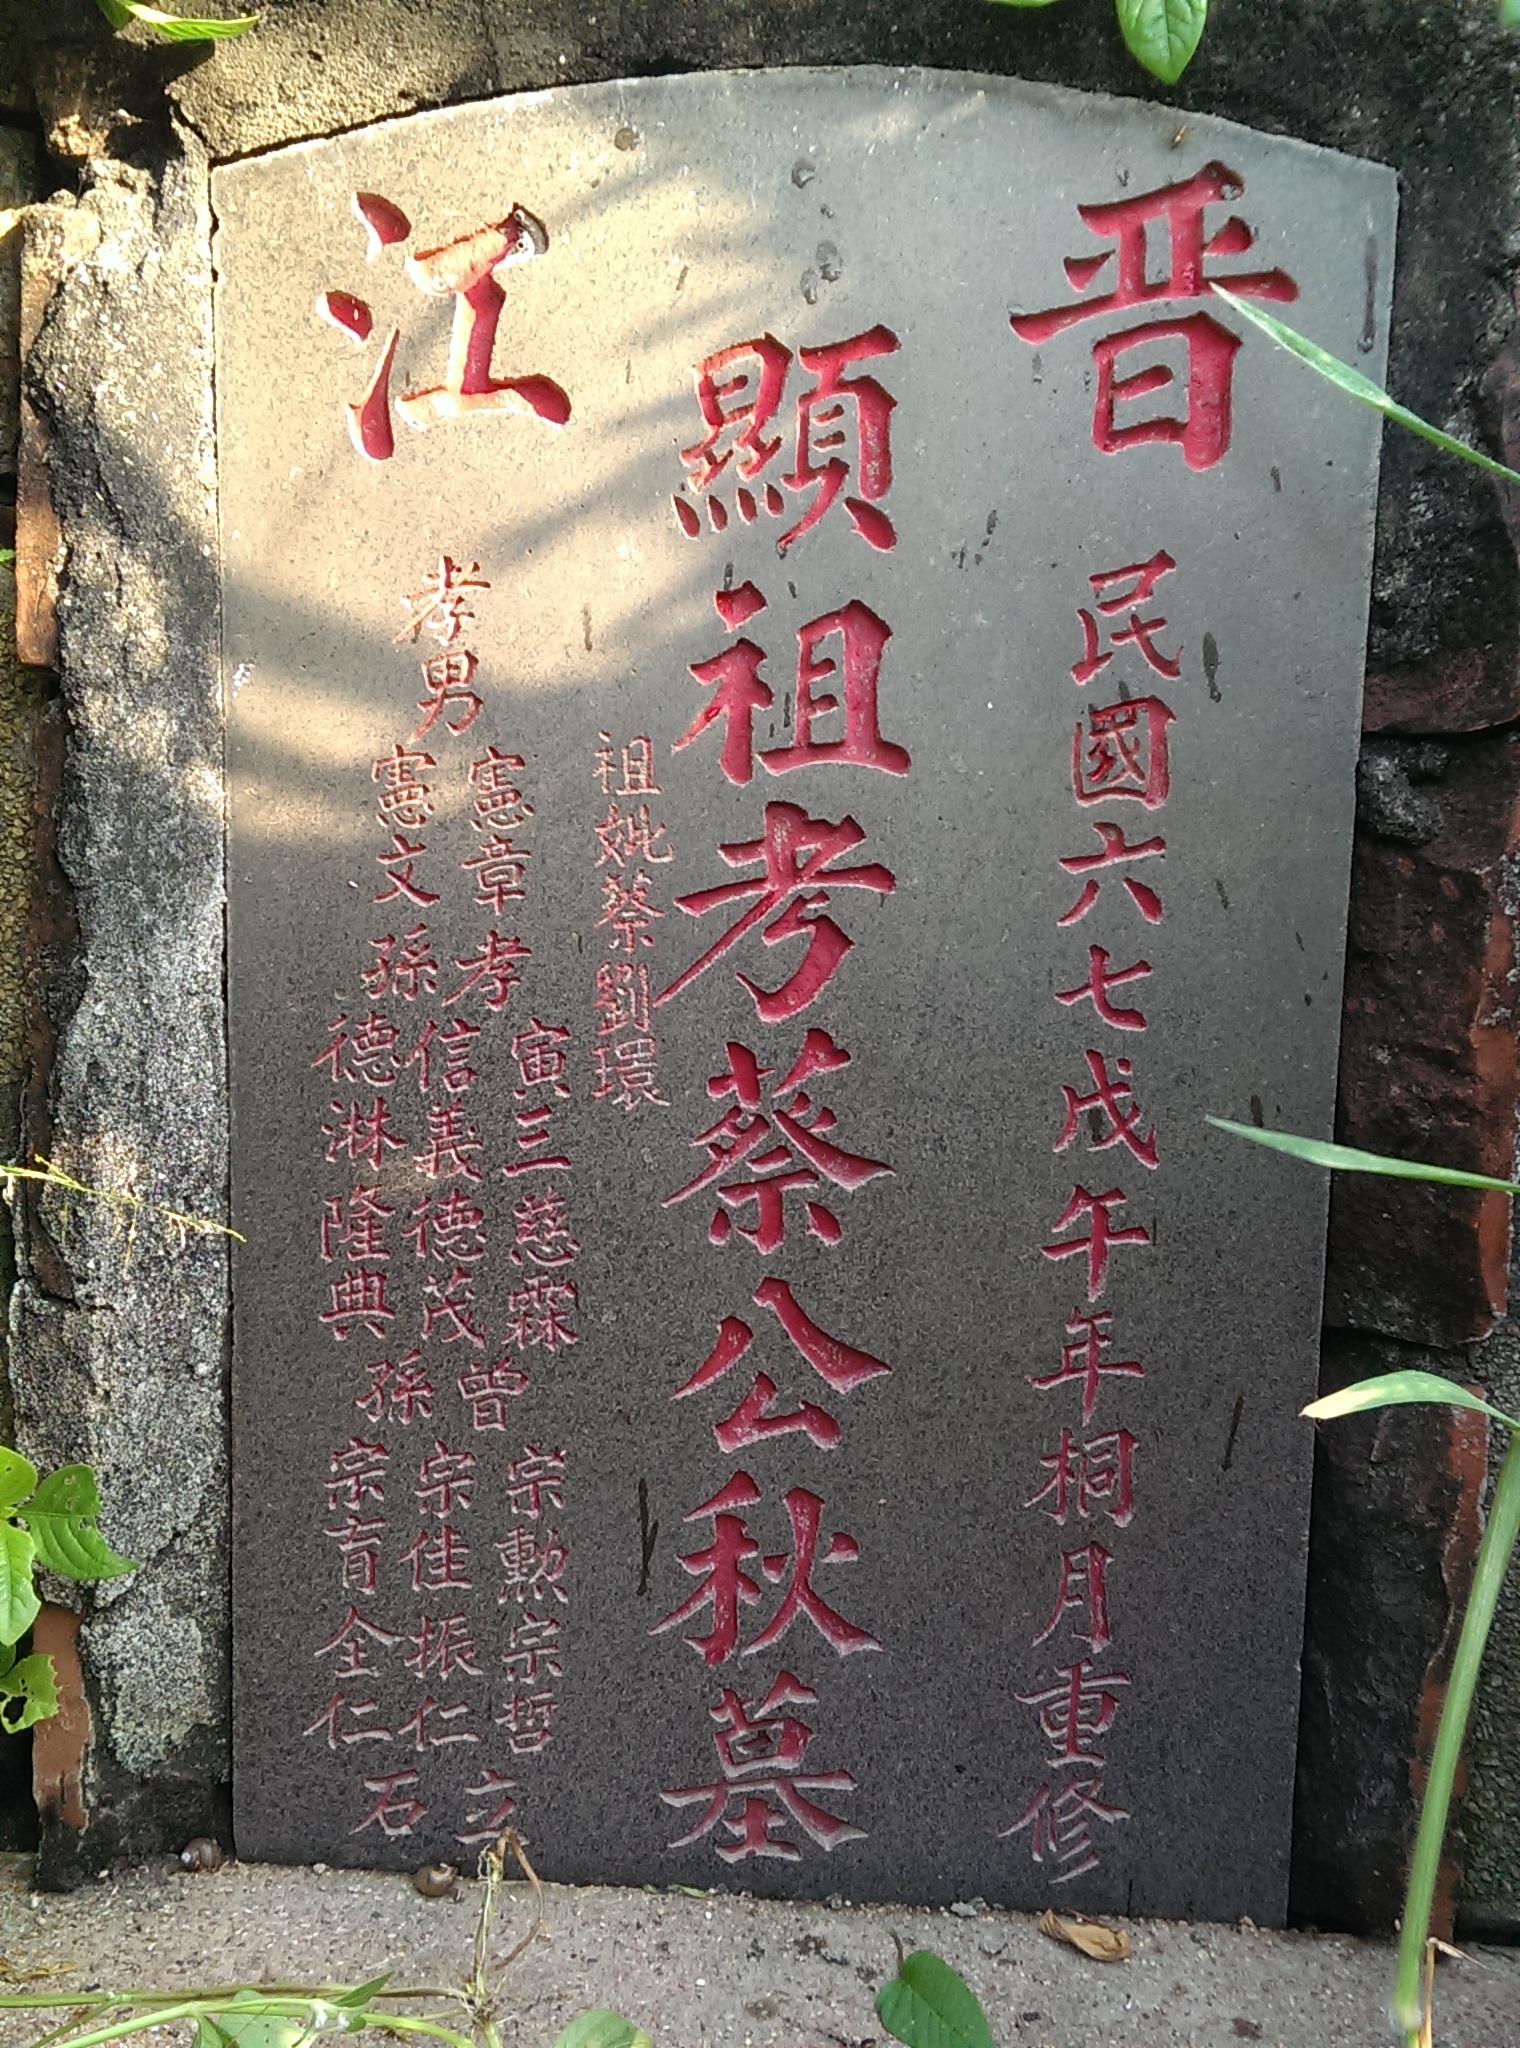 晋江
民國六七戊午年桐月重修
顯祖考蔡公秋墓
祖妣蔡劉環
孝男
憲章
憲文
孝孫
寅三慈霖
信義德茂
德淋隆典
曾孫
宗勲宗哲
宗佳振仁
宗育全仁
立石